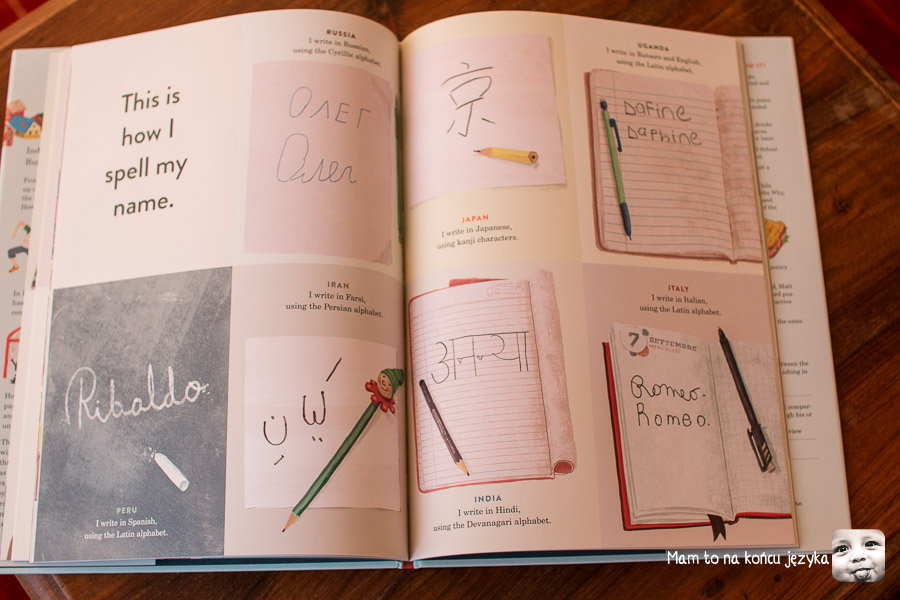 This is
how I
spell my
name.
RUSSIA
I write in Russian,
using the Cyrillic alphabet.
Олег
Олег
京
JAPAN
I write in Japanese,
using kanji characters.
UGANDA
I write in Rutooro and English,
using the Latin alphabet.
Dafine
Daphine
Ribaldo
PERU
I write in Spanish,
using the Latin alphabet.
IRAN
I write in Farsi,
using the Persian alphabet.
کَیانِ
अनन्या
INDIA
I write in Hindi,
using the Devanagari alphabet.
ITALY
I write in Italian,
using the Latin alphabet.
7 SETTEMBRE
MERCOLEDÌ
Romeo.
Romeo.
Mam to na końcu języka